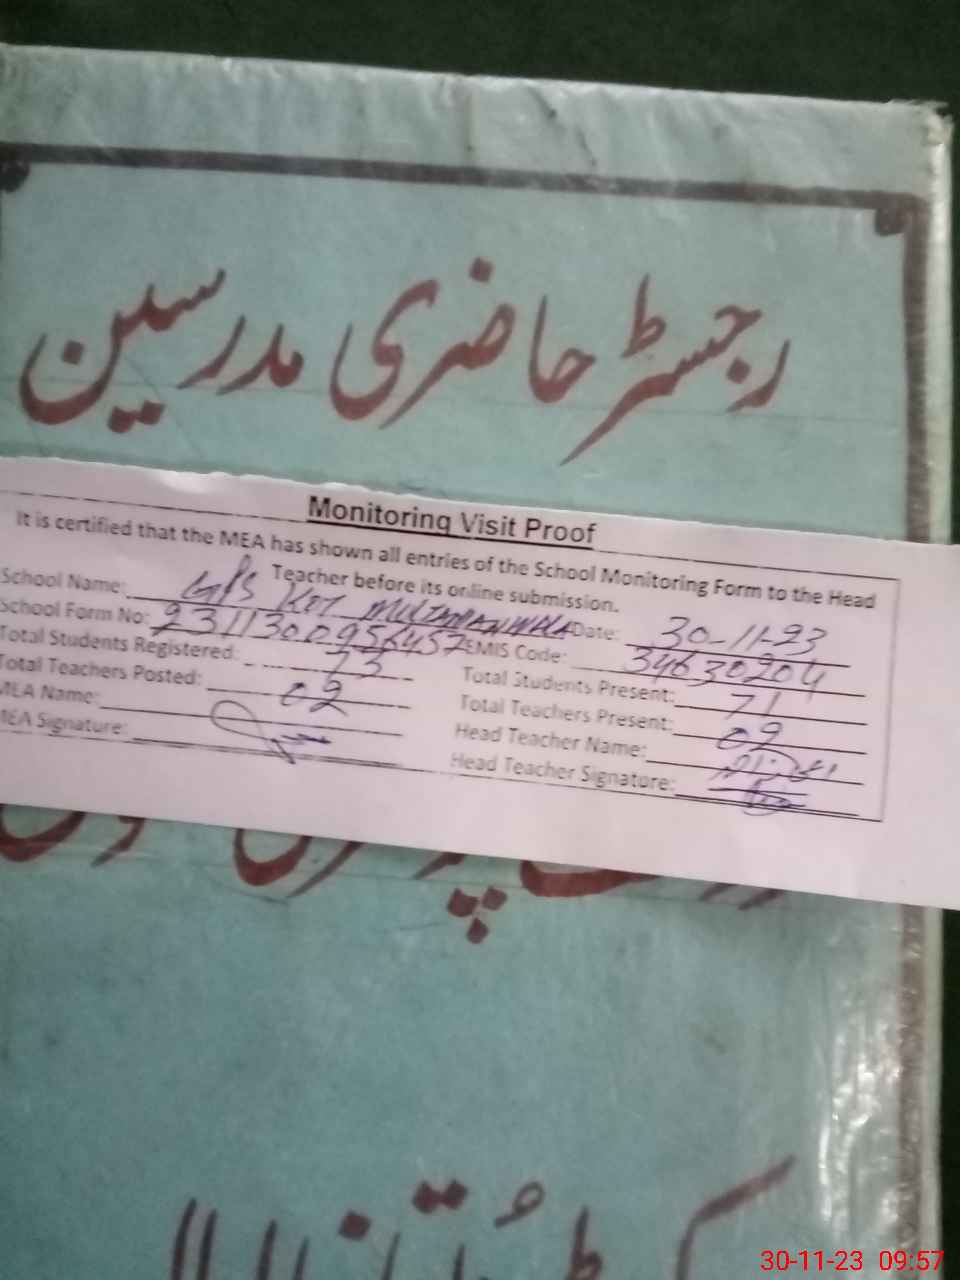 رجسٹر حاضری مدرسین
Monitoring Visit Proof
It is certified that the MEA has shown all entries of the School Monitoring Form to the Head
Teacher before its online submission.
School Name: GPS KOT MULTANANWALA Date: 30-11-23
School Form No: 23113000956457 EMIS Code: 34630204
Total Students Registered: 73 Total Students Present: 71
Total Teachers Posted: 02 Total Teachers Present: 02
MEA Name: Head Teacher Name:
MEA Signature: Head Teacher Signature:
30-11-23 09:57